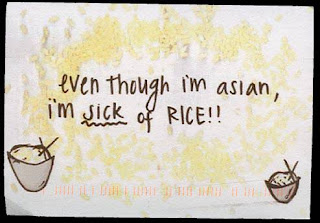 even though i'm asian,
i'm sick of RICE!!